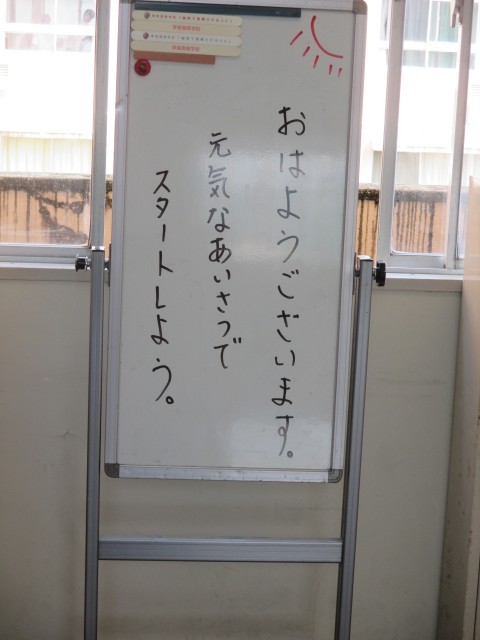 おはようございます。
元気なあいさつで
スタートしよう。